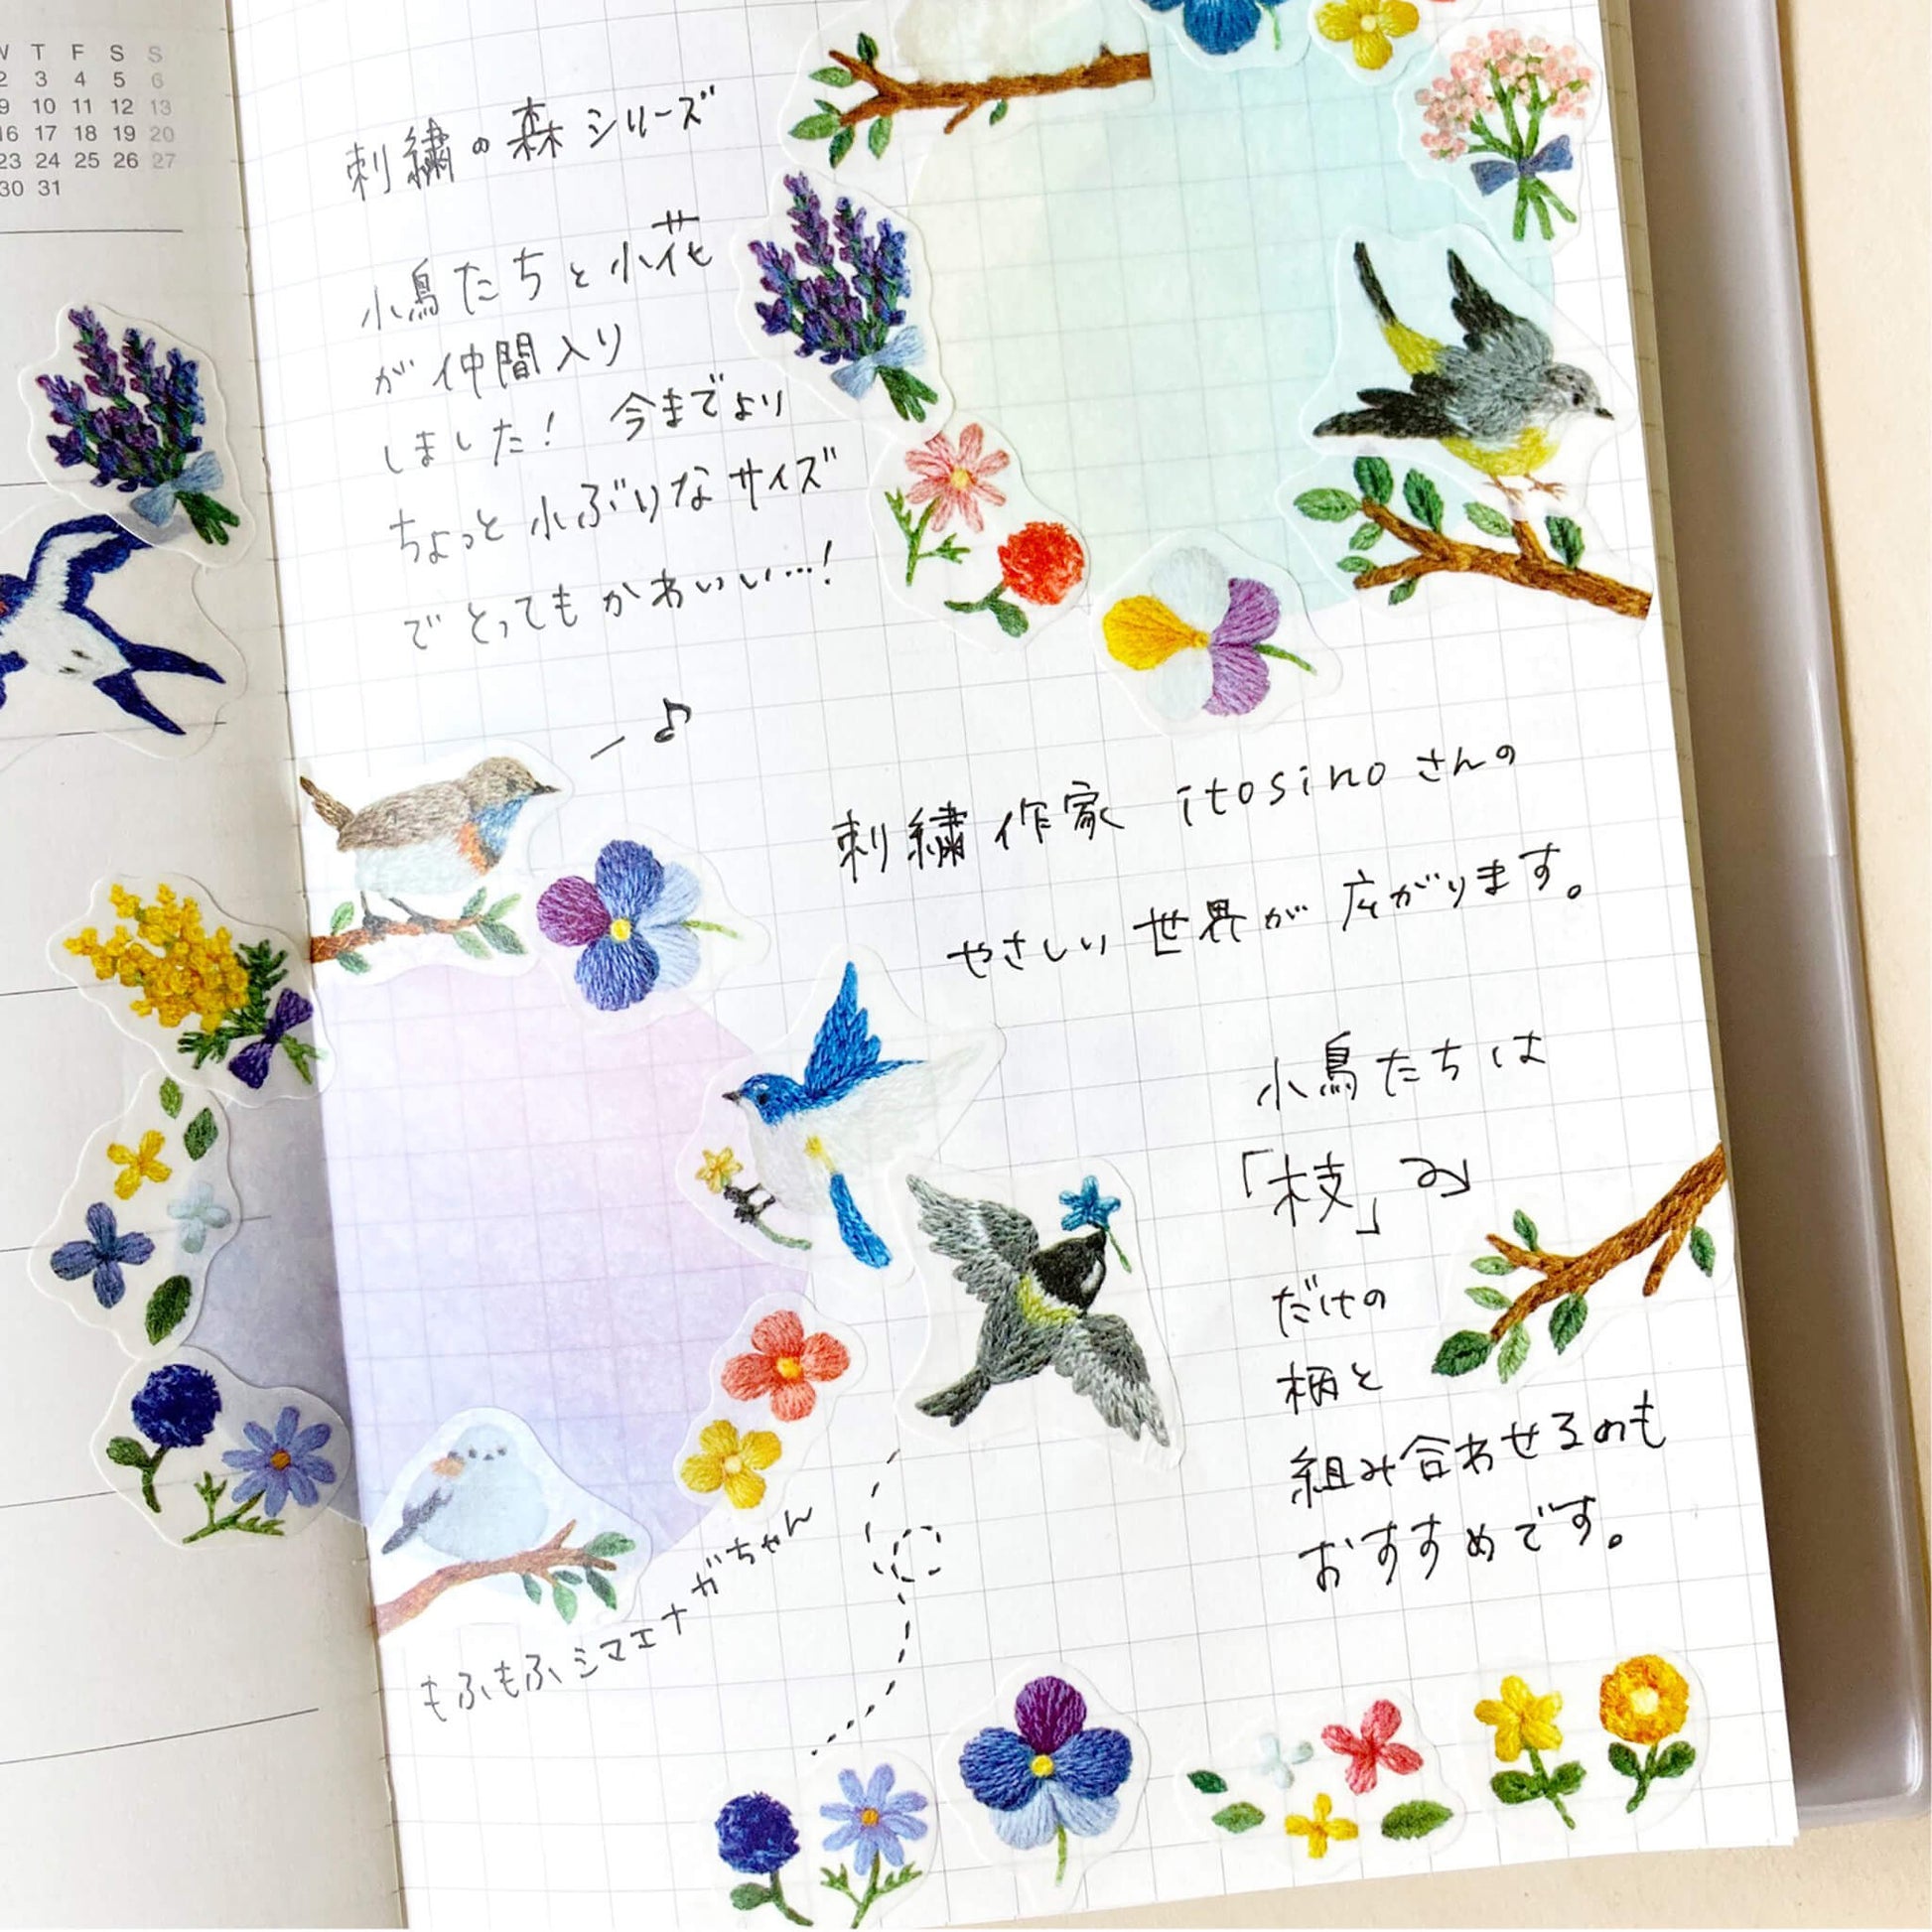 W T F S S
2 3 4 5 6
9 10 11 12 13
16 17 18 19 20
23 24 25 26 27
30 31
刺繍の森シリーズ
小鳥たちと小花
が仲間入り
しました! 今までより
ちょっと小ぶりなサイズ
でとってもかわいい…!
刺繍作家 itosinoさんの
やさしい世界が広がります。
小鳥たちは
「枝」
だけの
柄と
組み合わせるのも
おすすめです。
もふもふシマエナガちゃん